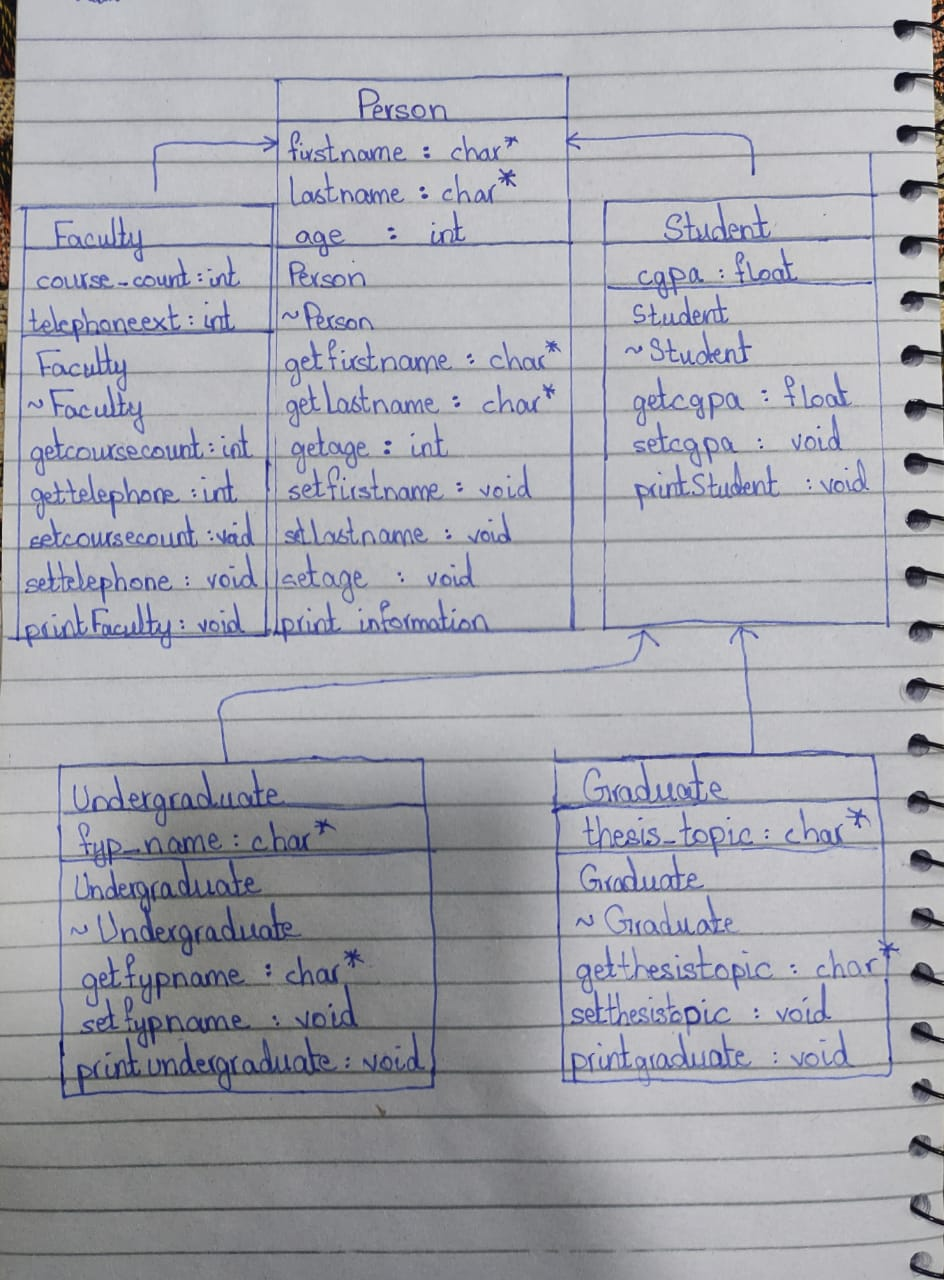 Person
firstname : char*
Lastname : char*
age : int
Person
~Person
getfirstname : char*
getLastname : char*
getage : int
setfirstname : void
setLastname : void
setage : void
print information
Faculty
course_count : int
telephoneext : int
Faculty
~Faculty
getcoursecount : int
gettelephone : int
setcoursecount : void
settelephone : void
printFaculty : void
Student
cgpa : float
Student
~Student
getcgpa : float
setcgpa : void
printStudent : void
Undergraduate
fyp_name : char*
Undergraduate
~Undergraduate
getfypname : char*
setfypname : void
printundergraduate : void
Graduate
thesis_topic : char*
Graduate
~Graduate
getthesistopic : char*
setthesistopic : void
printgraduate : void